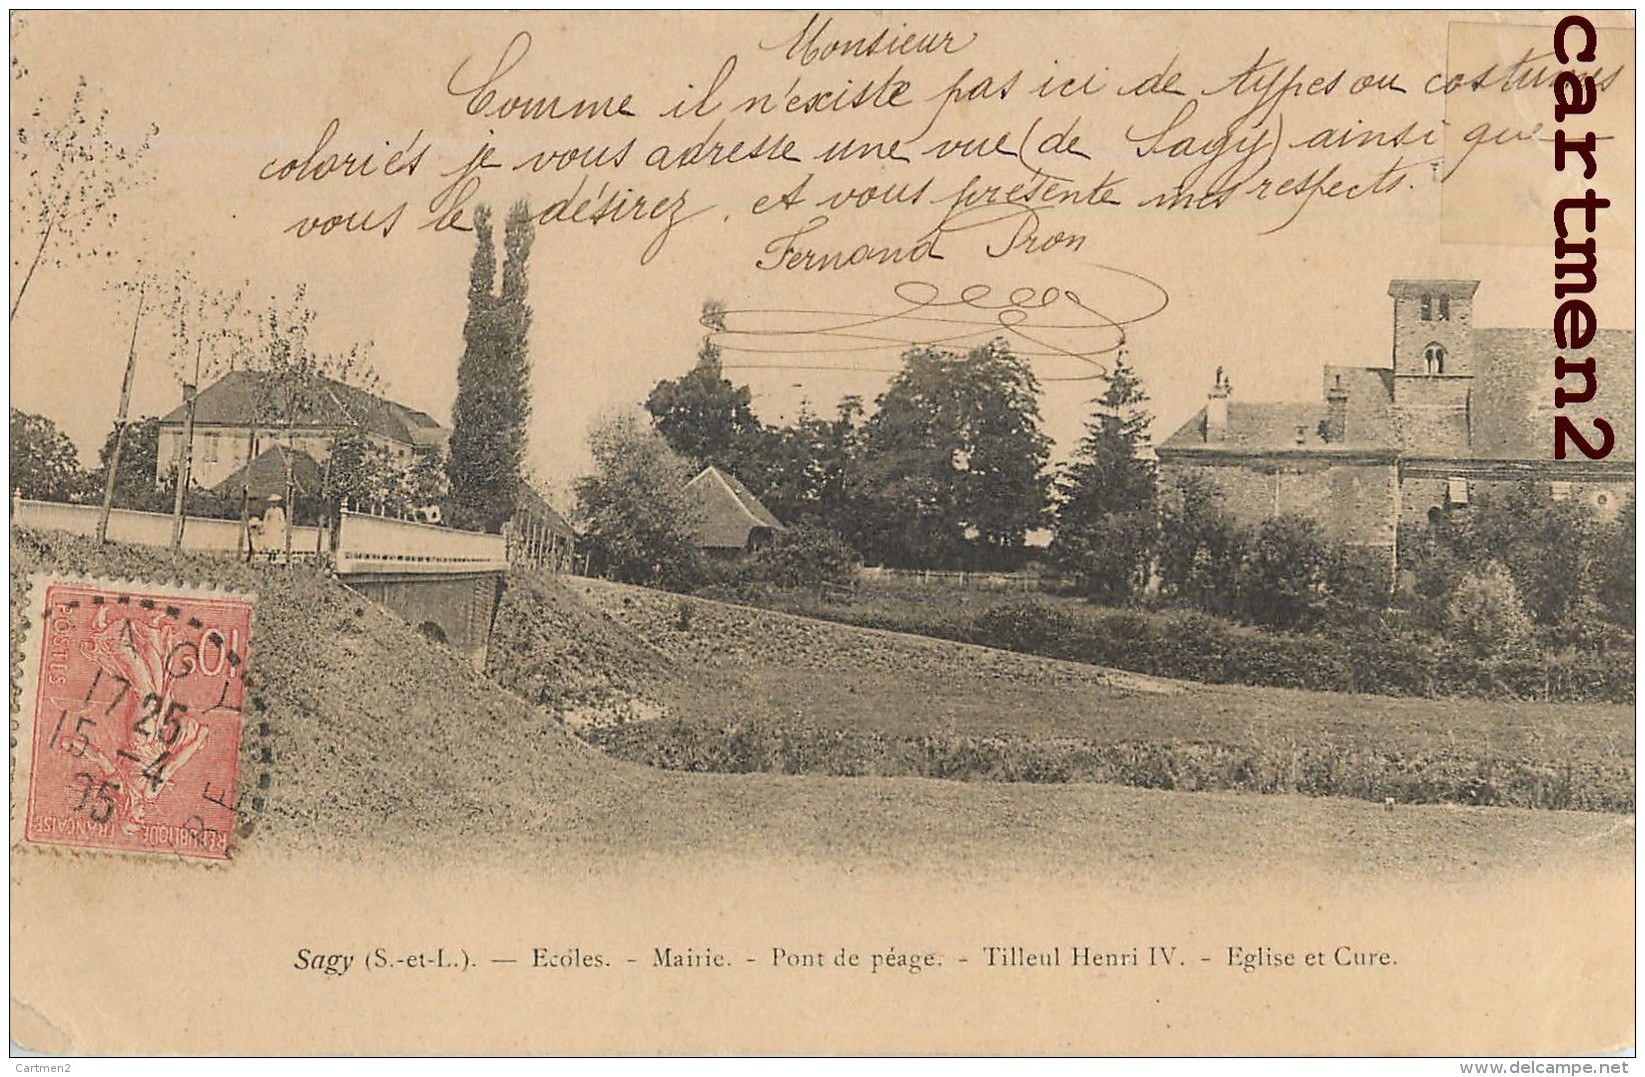 Monsieur
Comme il n'existe pas ici de types ou costumes
coloriés je vous adresse une vue (de Sagy) ainsi que
vous le désirez, et vous présente mes respects.
Fernand Pron
cartmen2
10
POSTES
REPUBLIQUE FRANÇAISE
AGY
17 25
15 -4
05
RE
Sagy (S.-et-L.). — Ecoles. - Mairie. - Pont de péage. - Tilleul Henri IV. - Eglise et Cure.
Cartmen2
www.delcampe.net